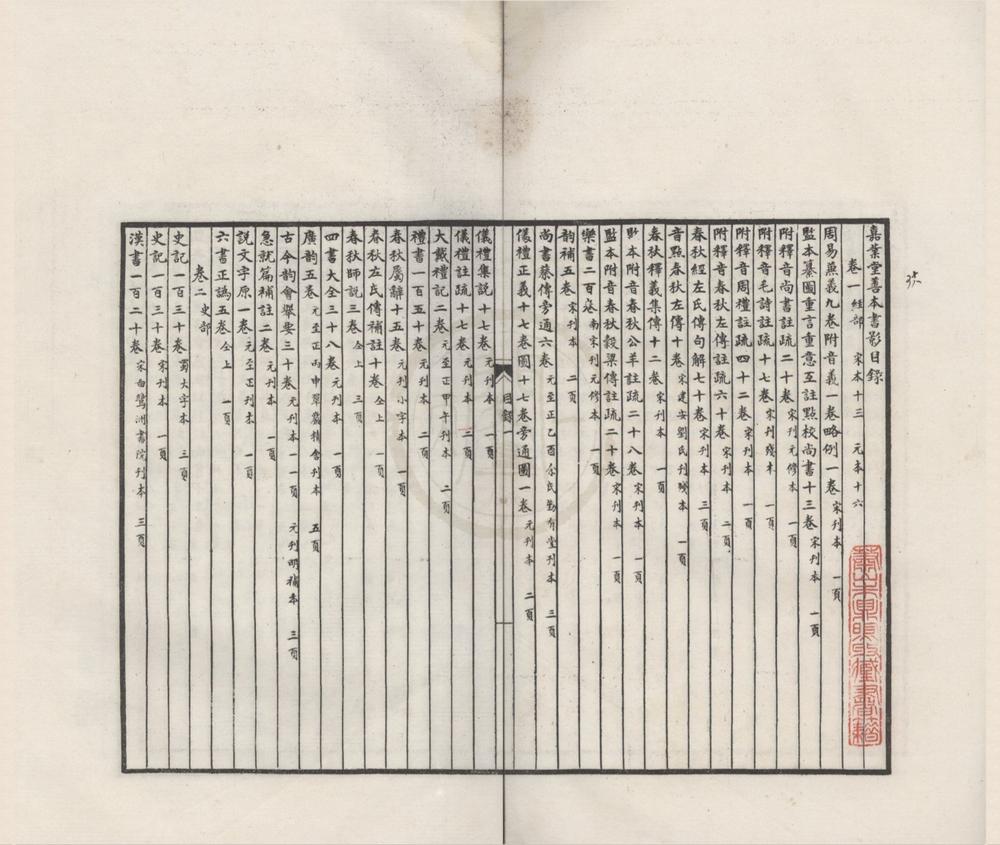 嘉業堂善本書影目錄
卷一 經部 宋本十三 元本十六
周易兼義九卷附音義一卷略例一卷 宋刊本 一頁
監本纂圖重言重意互註點校尚書十三卷 宋刊本 一頁
附釋音尚書註疏二十卷 宋刊元修本 一頁
附釋音毛詩註疏十七卷 宋刊殘本 一頁
附釋音周禮註疏四十二卷 宋刊本 一頁
附釋音春秋左傳註疏六十卷 宋刊本 二頁
春秋經左氏傳句解七十卷 宋刊本 三頁
音點春秋左傳十卷 宋建安劉氏刊殘本 一頁
春秋釋義集傳十二卷 宋刊本 一頁
監本附音春秋公羊註疏二十八卷 宋刊本 一頁
監本附音春秋穀梁傳註疏二十卷 宋刊本 一頁
樂書二百卷 南宋刊元修本 一頁
韵補五卷 宋刊本 二頁
尚書蔡傳旁通六卷 元至正乙酉余氏勤有堂刊本 三頁
儀禮正義十七卷圖十七卷旁通圖一卷 元刊本 二頁
目錄 一
儀禮集説十七卷 元刊本 一頁
儀禮註疏十七卷 元刊本 二頁
大戴禮記二卷 元至正甲午刊本 二頁
禮書一百五十卷 元刊本 二頁
春秋屬辭十五卷 元刊小字本 一頁
春秋左氏傳補註十卷 仝上 一頁
春秋師説三卷 仝上 三頁
四書大全三十八卷 元刊本 一頁
廣韵五卷 元至正丙申翠巖精舍刊本 五頁
古今韵會舉要三十卷 元刊本 一頁 元刊明補本 三頁
急就篇補註二卷 元刊本 一頁
説文字原一卷 元至正刊本 一頁
六書正譌五卷 仝上 一頁
卷二 史部
史記一百三十卷 蜀大字本 三頁
史記一百三十卷 宋刊本 一頁
漢書一百二十卷 宋白鷺洲書院刊本 三頁